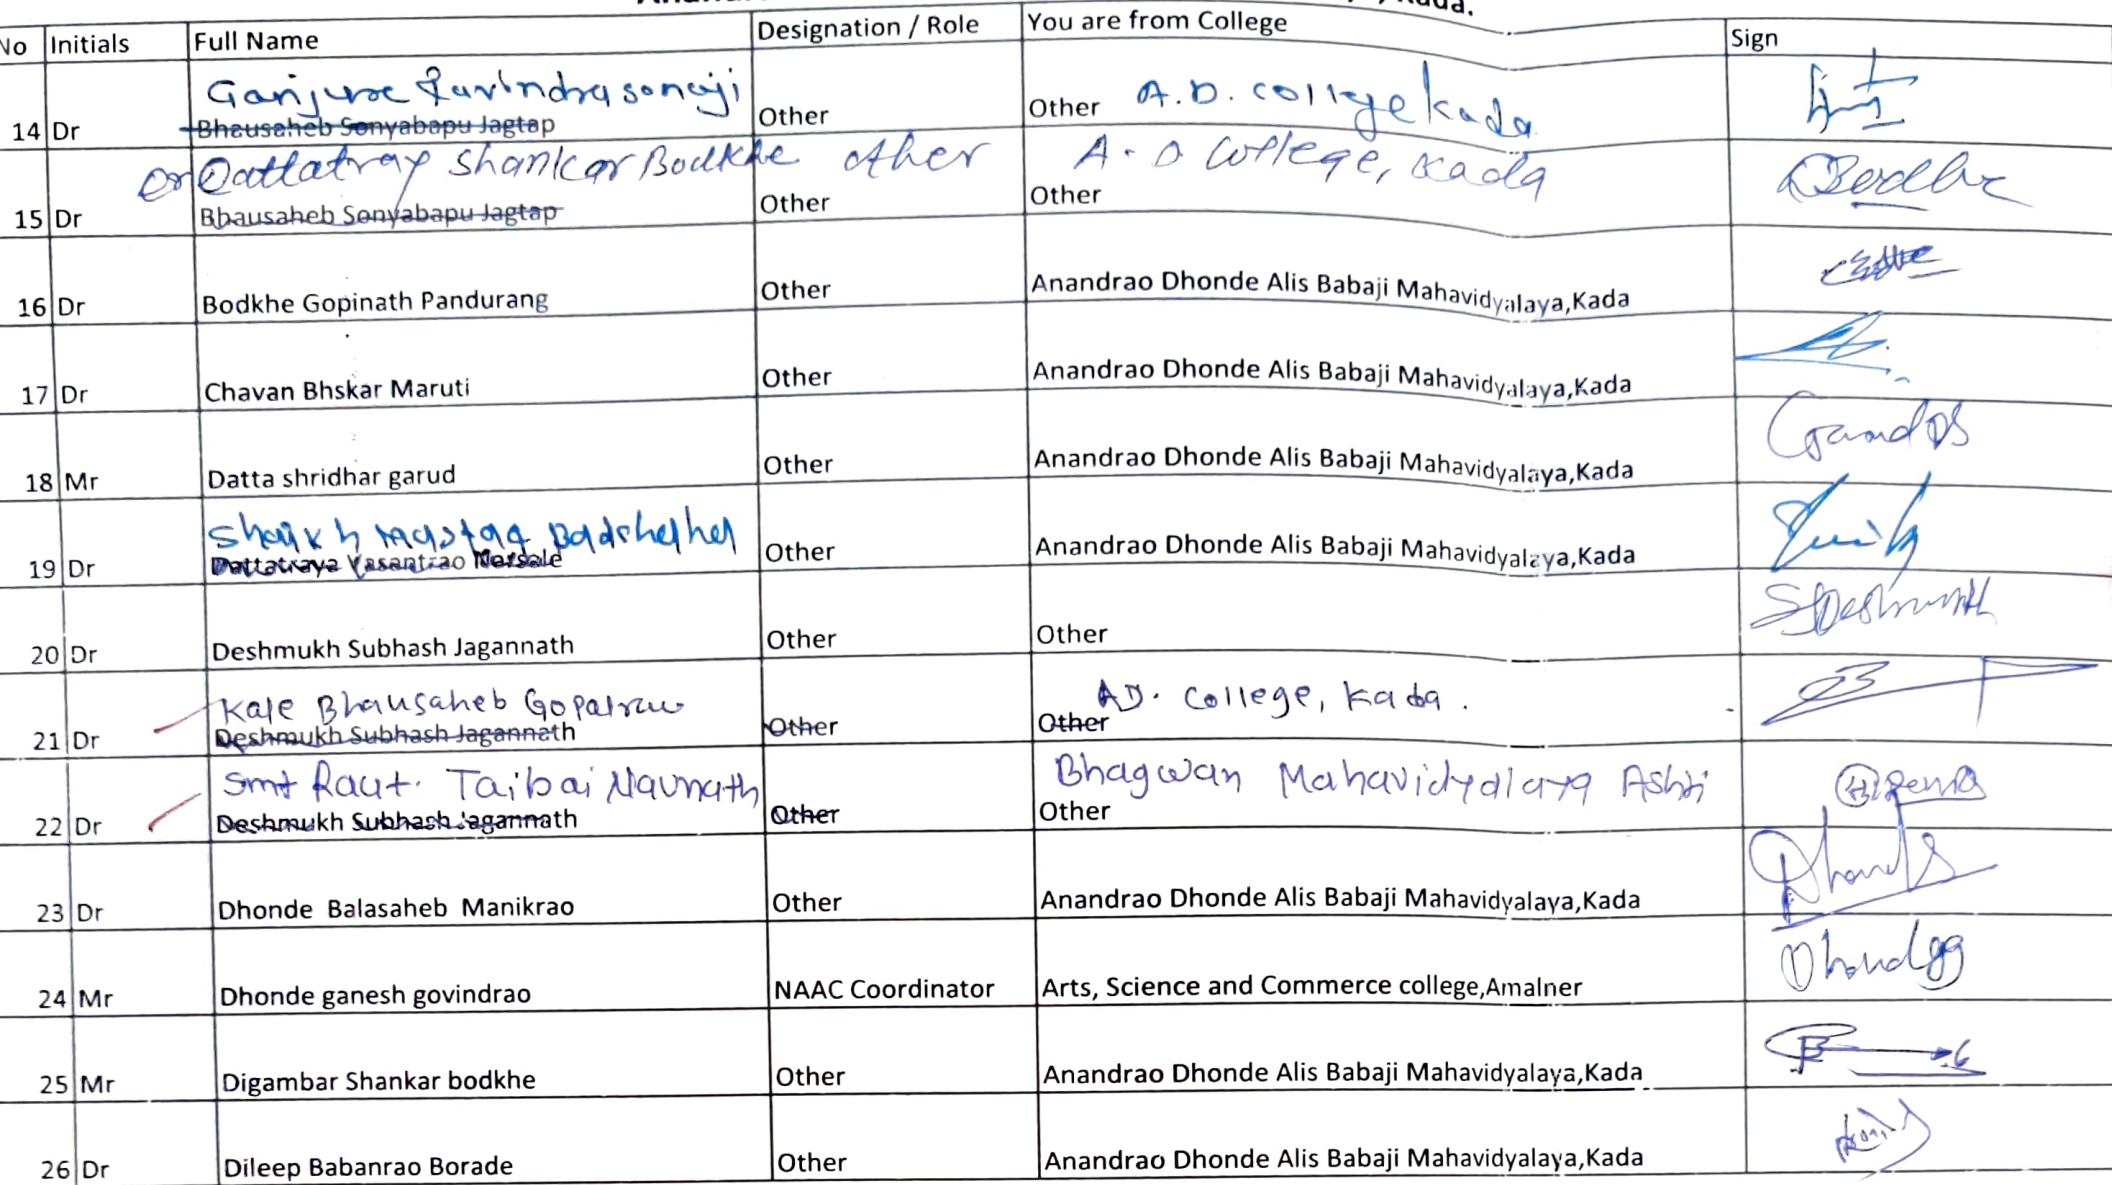 No Initials Full Name Designation / Role You are from College Sign
Ganjure Ravindra sonaji
14 Dr Bhausaheb Sonyabapu Jagtap Other Other A.D. college kada
Dr Dattatray Shankar Bodkhe other A.D College, Kada
15 Dr Bhausaheb Sonyabapu Jagtap Other Other Bodkhe
16 Dr Bodkhe Gopinath Pandurang Other Anandrao Dhonde Alis Babaji Mahavidyalaya,Kada
17 Dr Chavan Bhskar Maruti Other Anandrao Dhonde Alis Babaji Mahavidyalaya,Kada
18 Mr Datta shridhar garud Other Anandrao Dhonde Alis Babaji Mahavidyalaya,Kada
Shaikh
19 Dr Dattatraya Vasantrao Mersale Other Anandrao Dhonde Alis Babaji Mahavidyalaya,Kada
20 Dr Deshmukh Subhash Jagannath Other Other SJDeshmukh
Kale Bhausaheb Gopalrao AD. College, Kada.
21 Dr Deshmukh Subhash Jagannath Other Other
Smt Raut. Taibai Navnath Bhagwan Mahavidyalaya Ashti
22 Dr Deshmukh Subhash Jagannath Other Other
23 Dr Dhonde Balasaheb Manikrao Other Anandrao Dhonde Alis Babaji Mahavidyalaya,Kada
24 Mr Dhonde ganesh govindrao NAAC Coordinator Arts, Science and Commerce college,Amalner
25 Mr Digambar Shankar bodkhe Other Anandrao Dhonde Alis Babaji Mahavidyalaya,Kada
26 Dr Dileep Babanrao Borade Other Anandrao Dhonde Alis Babaji Mahavidyalaya,Kada